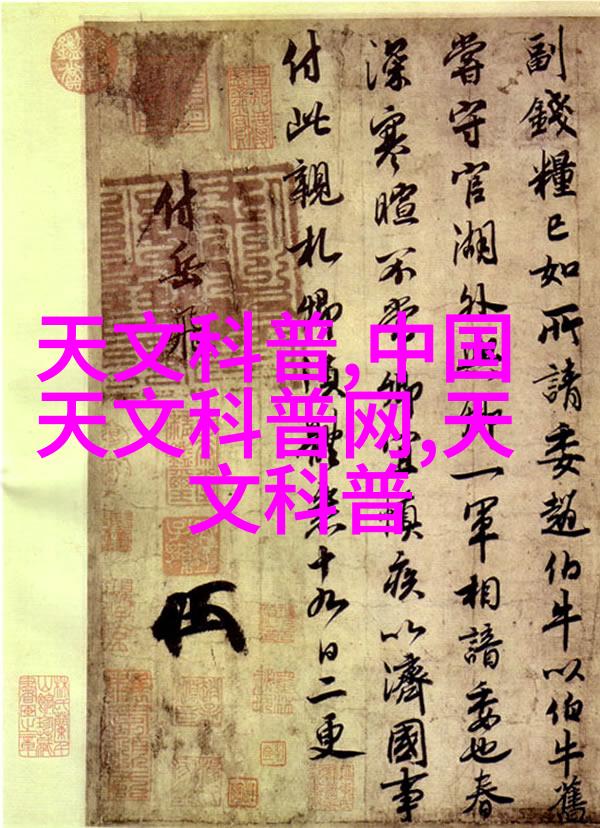 天文科普,中国
天文科普网,天
文科普
副錢糧已如所請委趙伯牛以伯牛舊
嘗守官湖外與卿一軍相諳委也春
深寒暄不常卿宜慎疾以濟國事
付此親札卿須體悉十九日二更
付岳飛